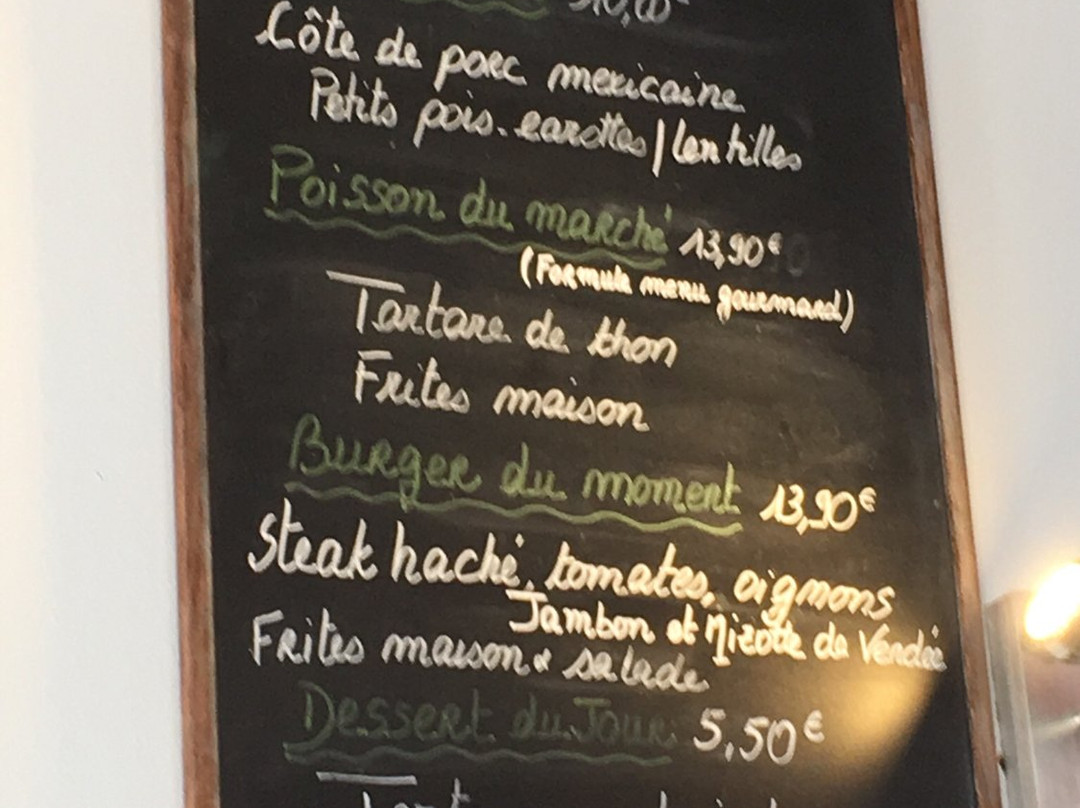 10,00€
Côte de porc mexicaine
Petits pois. carottes / lentilles
Poisson du marché 13,90€
(Formule menu gourmand)
Tartare de thon
Frites maison
Burger du moment 13,90€
Steak haché, tomates, oignons
Jambon et Mizotte de Vendée
Frites maison & salade
Dessert du Jour 5,50€